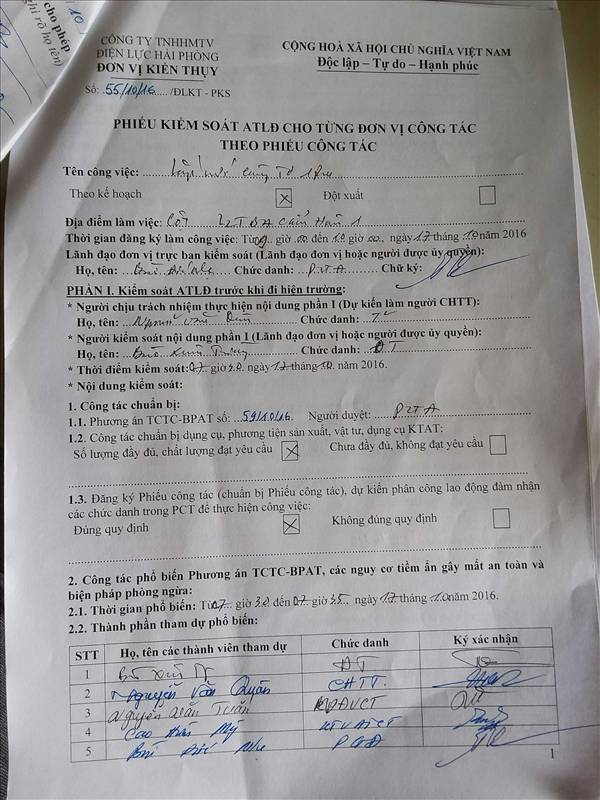 cho phép
ghi rõ họ tên)
CÔNG TY TNHHMTV
ĐIỆN LỰC HẢI PHÒNG
ĐƠN VỊ KIẾN THỤY
Số: 55/10/16 /ĐLKT - PKS
CỘNG HOÀ XÃ HỘI CHỦ NGHĨA VIỆT NAM
Độc lập – Tự do – Hạnh phúc
PHIẾU KIỂM SOÁT ATLĐ CHO TỪNG ĐƠN VỊ CÔNG TÁC
THEO PHIẾU CÔNG TÁC
Tên công việc:
Theo kế hoạch Đột xuất
Địa điểm làm việc:
Thời gian đăng ký làm công việc: Từ giờ 00 đến giờ 00, ngày 17 tháng 10 năm 2016
Lãnh đạo đơn vị trực ban kiểm soát (Lãnh đạo đơn vị hoặc người được ủy quyền):
Họ, tên: Chức danh: Chữ ký:
PHẦN I. Kiểm soát ATLĐ trước khi đi hiện trường:
* Người chịu trách nhiệm thực hiện nội dung phần I (Dự kiến làm người CHTT):
Họ, tên: Chức danh:
* Người kiểm soát nội dung phần I (Lãnh đạo đơn vị hoặc người được ủy quyền):
Họ, tên: Chức danh: ĐT
* Thời điểm kiểm soát: 07 giờ 30 ngày 17 tháng 10 năm 2016.
* Nội dung kiểm soát:
1. Công tác chuẩn bị:
1.1. Phương án TCTC-BPAT số: 59/10/16 Người duyệt:
1.2. Công tác chuẩn bị dụng cụ, phương tiện sản xuất, vật tư, dụng cụ KTAT:
Số lượng đầy đủ, chất lượng đạt yêu cầu Chưa đầy đủ, không đạt yêu cầu
1.3. Đăng ký Phiếu công tác (chuẩn bị Phiếu công tác), dự kiến phân công lao động đảm nhận
các chức danh trong PCT để thực hiện công việc:
Đúng quy định Không đúng quy định
2. Công tác phổ biến Phương án TCTC-BPAT, các nguy cơ tiềm ẩn gây mất an toàn và
biện pháp phòng ngừa:
2.1. Thời gian phổ biến: Từ 07 giờ 30 đến 07 giờ 35, ngày 17 tháng 10 năm 2016.
2.2. Thành phần tham dự phổ biến:
STT Họ, tên các thành viên tham dự Chức danh Ký xác nhận
1 ĐT
2 Nguyễn Văn CHTT
3 Nguyễn Tuấn
4 Cao Mỹ
5 Bùi PGĐ
1